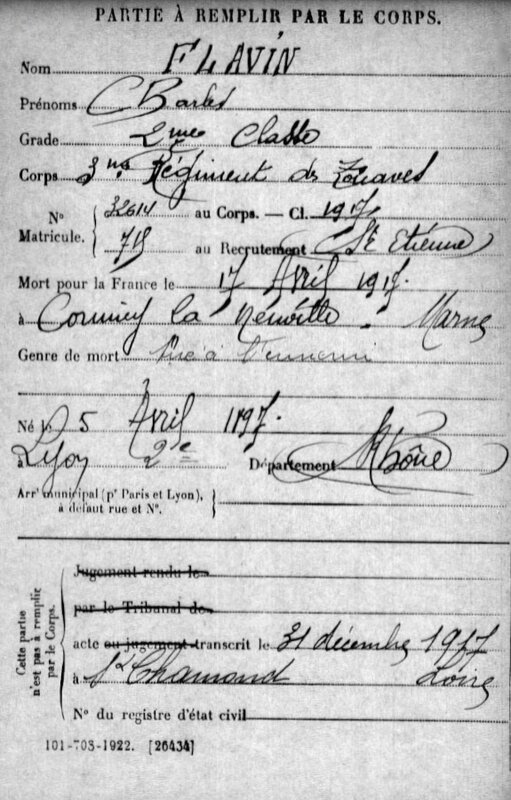 PARTIE À REMPLIR PAR LE CORPS.
Nom FLAVIN
Prénoms Charles
Grade 2me Classe
Corps 3me Régiment de Zouaves
N° Matricule. 32614 au Corps. — Cl. 1917
715 au Recrutement St Etienne
Mort pour la France le 17 Avril 1917.
à Cormicy la Neuville - Marne
Genre de mort Tué à l'ennemi
Né le 5 Avril 1897.
à Lyon 2e Département Rhône
Arrt municipal (pr Paris et Lyon),
à défaut rue et N°.
Cette partie n'est pas à remplir par le Corps.
Jugement rendu le
par le Tribunal de
acte ou jugement transcrit le 31 décembre 1917
à St Chamond Loire
N° du registre d'état civil
101-703-1922. [26434]